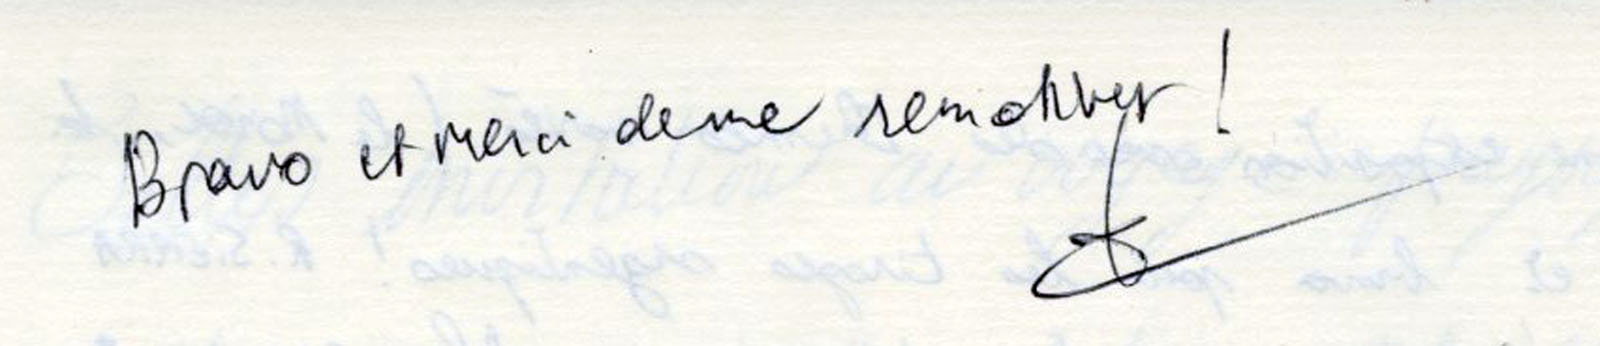 Bravo et merci de me remotiver !